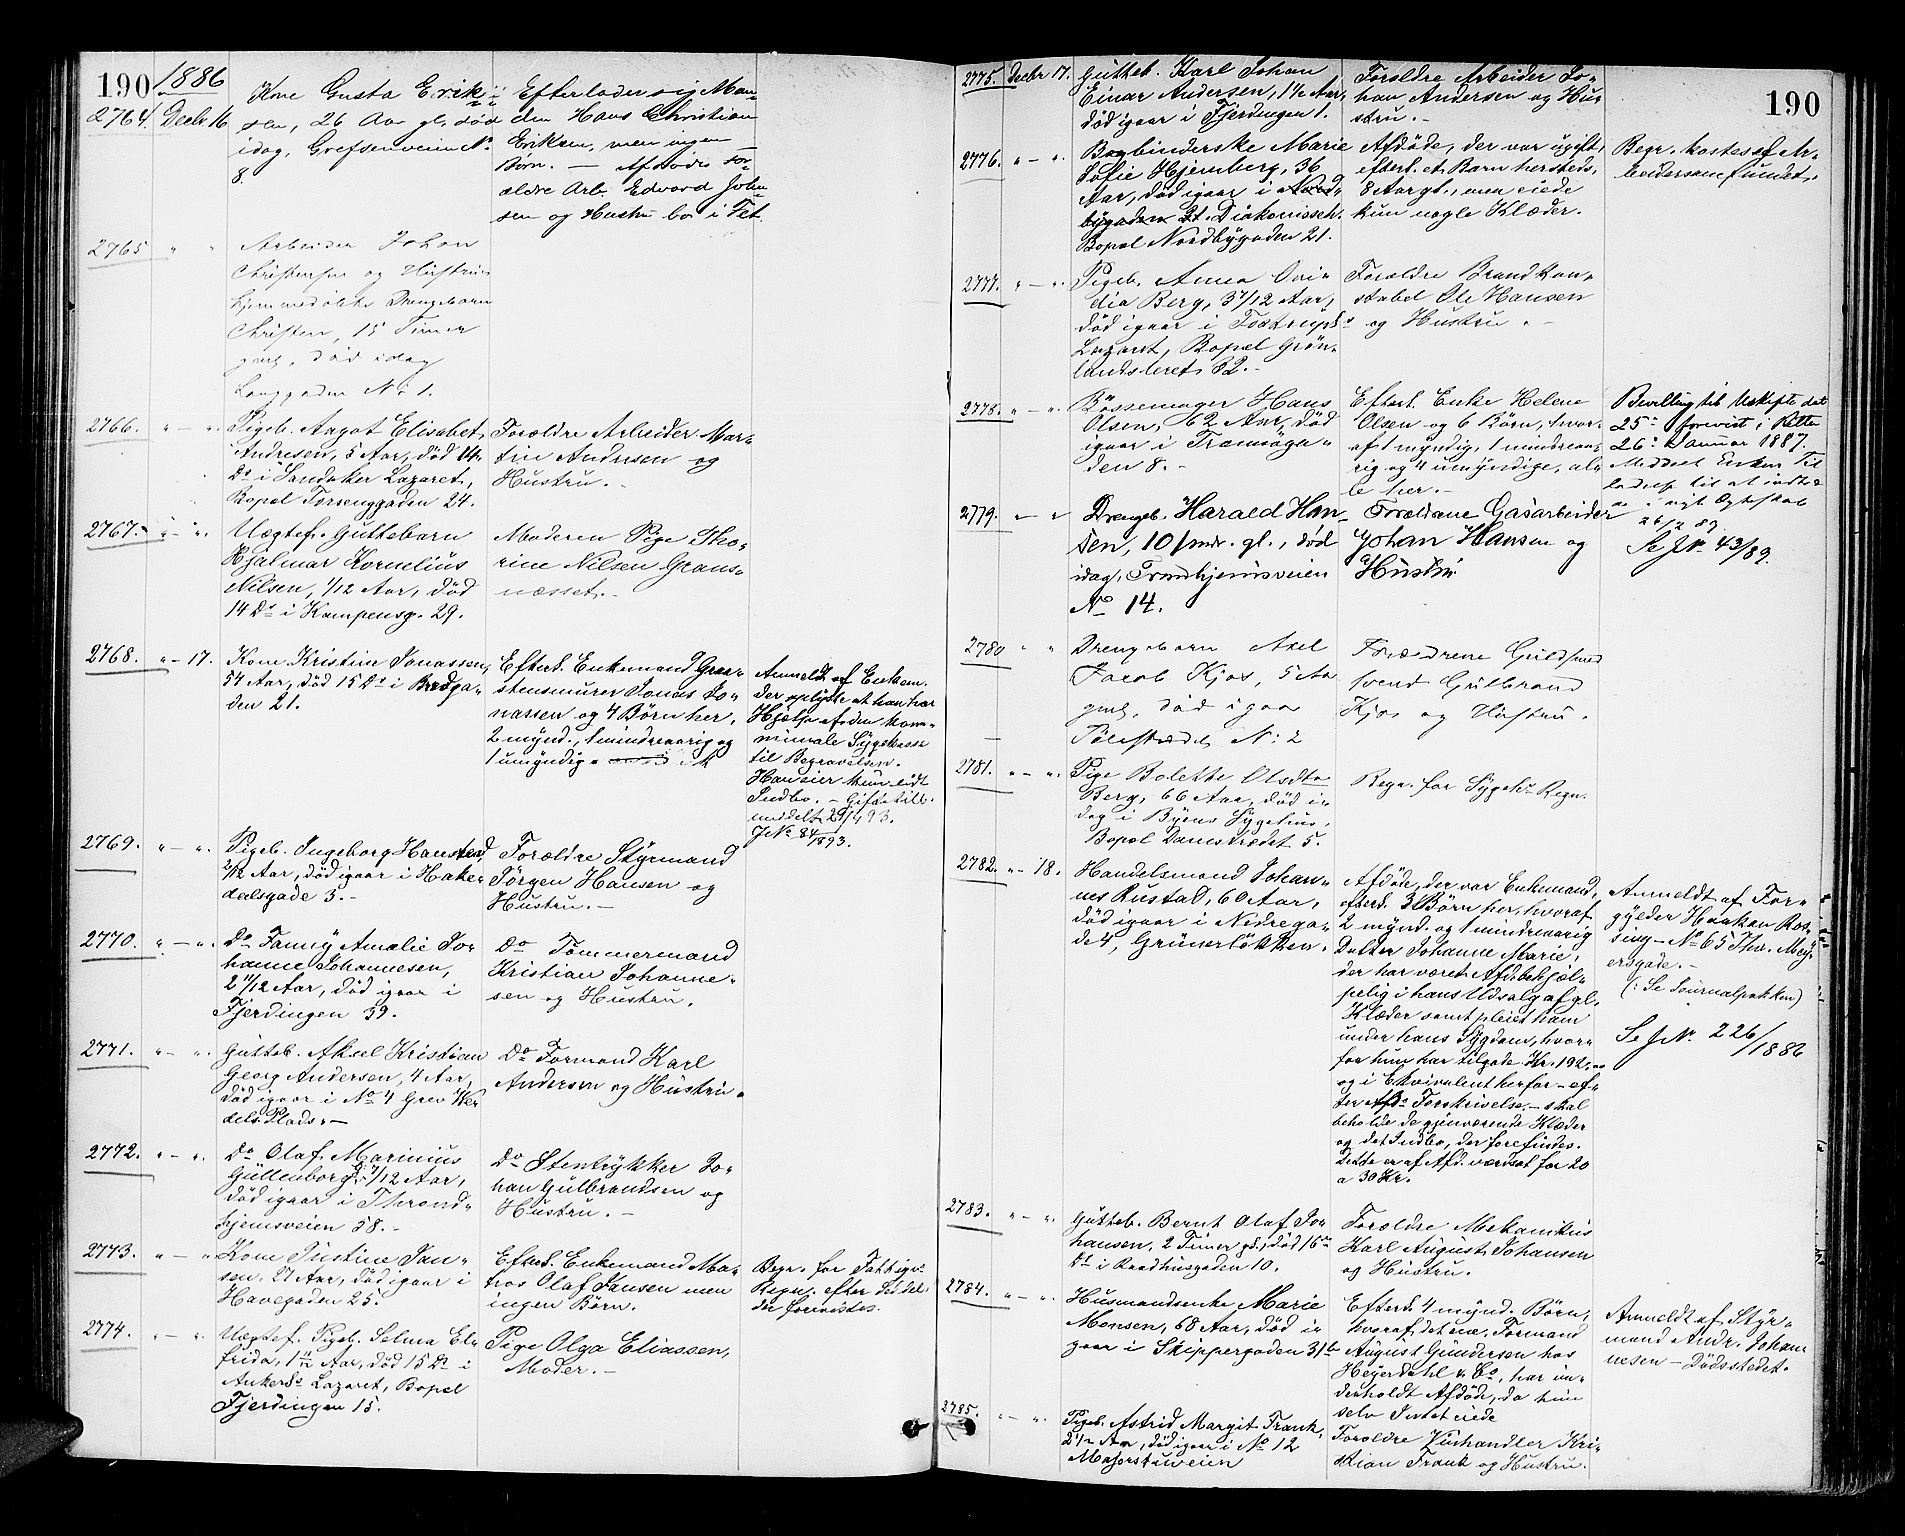 190
1886
2764. Decbr 16
Kone Gusta Erik-
sen, 26 Aar gl. død
idag, Grefsenveien No
8.
Efterlader sig Man-
den Hans Christian
Eriksen, men ingen
Børn. — Afdødes For-
ældre Arb. Edvard John-
sen og Hustru bor i Fet.
2765 " "
Arbeider Johan
Christensen og Hustrus
hjemmedøbte Drengebarn
Christen, 15 Timer
gml, død idag
Langgaden No 1.
2766. " — ".
Pigeb. Aagot Elisabet
Andresen, 5 Aar, død 14de
Ds i Sandaker Lazaret,
Bopæl Torvenggaden 24.
Forældre Arbeider Mar-
tin Andresen og
Hustru. —
2767. " — ".
Uægtef. Guttebarn
Hjalmar Kornelius
Nilsen, 1/12 Aar, død
14 Ds i Kampensg. 29.
Moderen Pige Tho-
rine Nilsen Grans-
næsset. —
2768. " — 17.
Kone Kristine Jonassen,
54 Aar, død 15 Ds i Bredga-
den 21.
Efterl. Enkemand Graa-
stensmurer Jonas Jo-
nassen og 4 Børn her,
2 mynd., 1 mindreaarig og
1 umyndig.
Anmeldt af Enkem.
der oplyste at han har
Hjælp af den kom-
munale Sygekasse
til Begravelsen.
Han eier kun lidt
Indbo. — Giftetill.
meddelt 29/4 93.
J No 84/1893.
2769. " — ".
Pigeb. Ingeborg Hanstead,
2/12 Aar, død igaar i Hake-
dalsgade 3. —
Forældre Styrmand
Jørgen Hansen og
Hustru. —
2770. " — ".
Do Fanny Amalie Jo-
hanne Johannesen,
2 11/12 Aar, død igaar i
Fjerdingen 39.
Do Tømmermand
Kristian Johanne-
sen og Hustru.
2771. " — ".
Gutteb. Aksel Kristian
Georg Andersen, 4 Aar,
død igaar i No 4 Grev We-
dels Plads. —
Do Formand Karl
Andersen og Hustru.
2772. " — ".
Do Olaf Marinius
Gullenborg, 7/12 Aar,
død igaar i Thrond-
hjemsveien 58. —
Do Stentrykker Jo-
han Gulbrandsen og
Hustru. —
2773. " — "
Kone Justine Jan-
sen, 27 Aar, død igaar i
Havegaden 25.
Efterl. Enkemand Ma-
tros Olaf Jansen men
ingen Børn.
Begr. for Fattigv.
Regn. efter Seddel
der forevistes.
2774. " — ".
Uægtef. Pigeb. Selma El-
frida, 1 11/12 Aar, død 15 Ds i
Ankers Lazaret, Bopæl
Fjerdingen 15.
Pige Olga Eliassen,
Moder. —
190
2775. Decbr 17.
Gutteb. Karl Johan
Einar Andersen, 1 1/2 Aar,
død igaar i Fjerdingen 1.
Forældre Arbeider Jo-
han Andersen og Hu-
stru. —
2776. " — ".
Bogbinderske Marie
Sofie Hjernberg, 36
Aar, død igaar i Nord-
bygaden 21. Diakonisseh.
Bopæl Nordbygaden 21.
Afdøde, der var ugift,
efterl. et Barn hersteds,
8 Aar gl., men eiede
kun nogle Klæder.
Begr. kostes af Ar-
beidersamfundet.
2777. " — ".
Pigeb. Anna Ovi-
dia Berg, 3 7/12 Aar,
død igaar i Tostrups
Lazaret, Bopæl Grøn-
landsleret 32. —
Forældre Brandkon-
stabel Ole Hansen
og Hustru. —
2778. " — ".
Bøssemager Hans
Olsen, 62 Aar, død
igaar i Tromsøga-
den 8. —
Efterl. Enke Helene
Olsen og 6 Børn, hvor-
af 1 myndig, 1 mindreaa-
rig og 4 umyndige, al-
le her. —
Bevilling til Uskifte dat.
25de forevist i Retten
26de Januar 1887.
Meddelt Enken Til-
ladelse til at indtræ-
de i nyt Ægteskab
26/2 89.
Se J No 43/89.
2779. " — "
Drengeb. Harald Han-
sen, 10 Mdr. gl., død
idag, Trondhjemsveien
No 14.
Forældrene Gasarbeider
Johan Hansen og
Hustru.
2780 " "
Drengebarn Axel
Jacob Kjos, 5 Aar
gml, død igaar
Pilestrædet No 2
Forældrene Guldsmed
svend Gulbrand
Kjos og Hustru.
2781. " — ".
Pige Bolette Olsdtr
Berg, 66 Aar, død i-
dag i Byens Sygehus,
Bopæl Damstrædet 5.
Begr. for Sygehs Regn.
2782. " — 18.
Handelsmand Johan-
nes Rustad, 60 Aar,
død igaar i Nedrega-
de 4, Grünerløkken.
Afdøde, der var Enkemand,
efterl. 3 Børn her, hvoraf
2 mynd. og 1 mindreaarig
Datter Johanne Marie,
der har været Afd. behjæl-
pelig i hans Udsalg af gl.
Klæder samt pleiet ham
under hans Sygdom, hvor-
for hun har tilgode Kr. 192,00
og i Ekvivalent herfor — ef-
ter Afds Forskrivelse — skal
beholde de gjenværende Klæder
og det Indbo, der forefindes.
Dette er af Afd. værdsat for 20
a 30 Kr.
Anmeldt af For-
gylder Haakon Ros-
sing — No 65 Thv. Mey-
ersgade. —
(: Se Journalpakken)
Se J No 226/1886
2783. " — ".
Gutteb. Bernt Olaf Jo-
hansen, 2 Timer gl., død 16de
Ds i Raadhusgaden 10.
Forældre Mekanikus
Karl August Johansen
og Hustru.
2784. " — ".
Husmandsenke Marie
Monsen, 68 Aar, død i-
gaar i Skippergaden 31b
Efterl. 4 mynd. Børn,
hvoraf det ene, Formand
August Gundersen hos
Heyerdahl & Co, har un-
derholdt Afdøde, da hun
selv Intet eiede
Anmeldt af Styr-
mand Andr. Johan-
nesen — Dødsstedet.
2785. " — ".
Pigeb. Astrid Margit Frank,
2 1/2 Aar, død igaar i No 12
Majorstuveien
Forældre Vinhandler Kri-
stian Frank og Hustru.